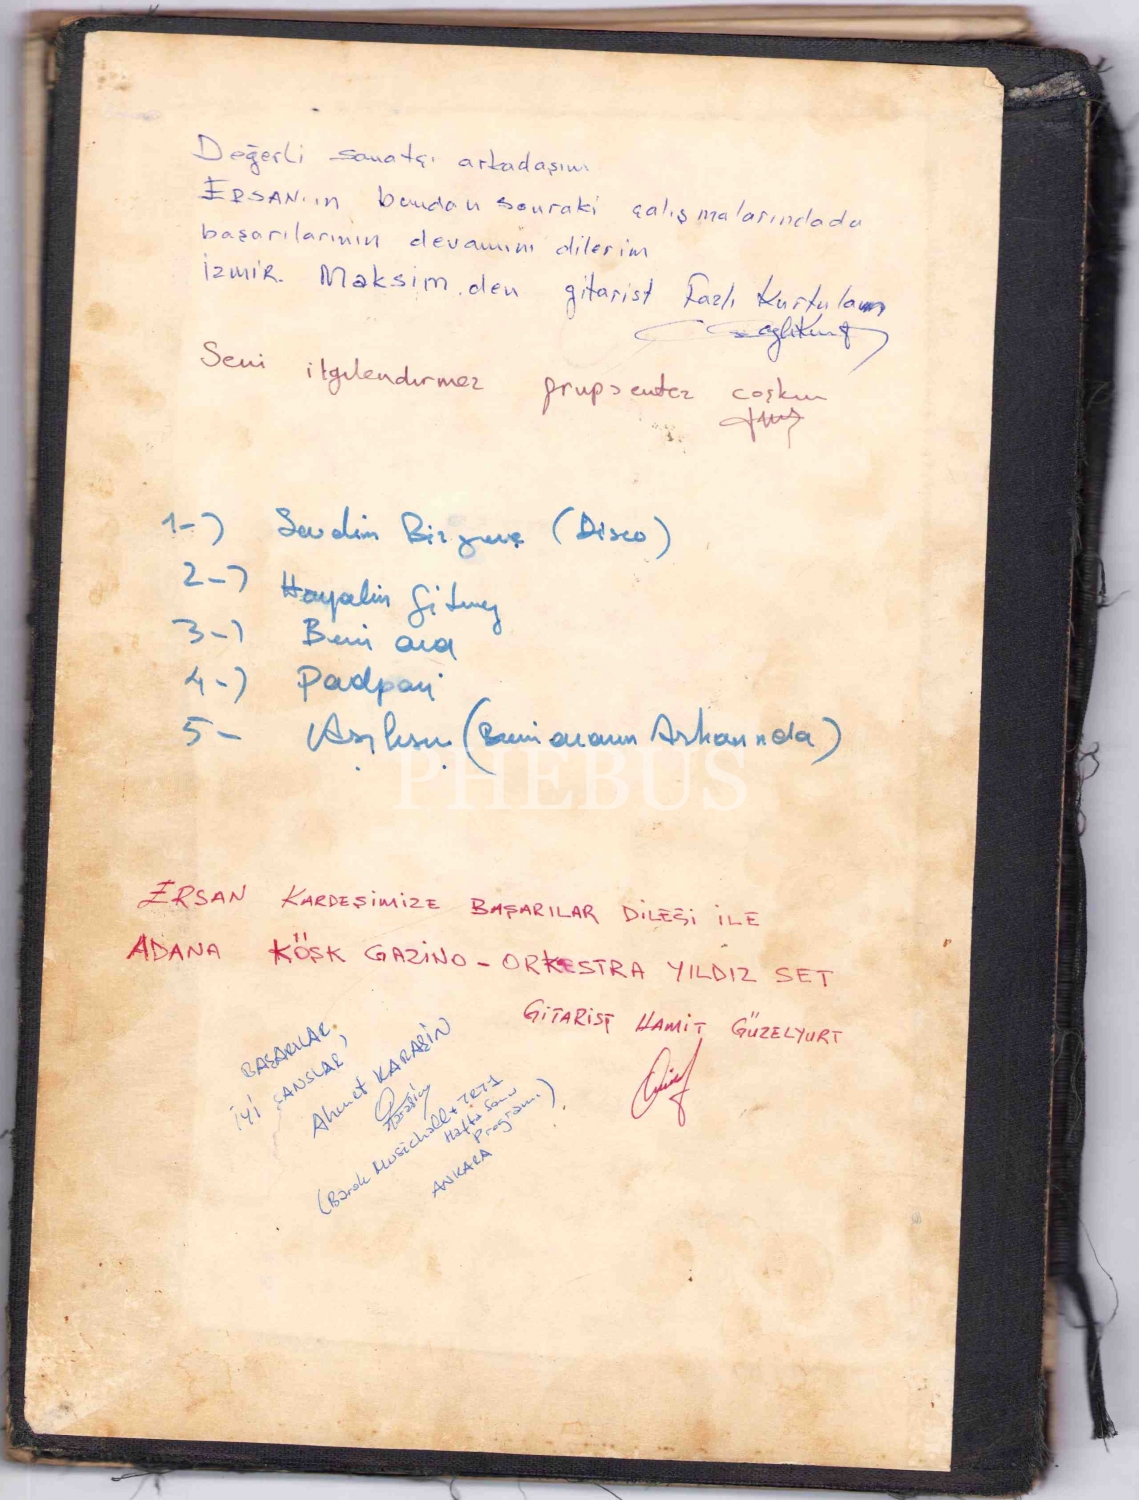 Değerli sanatçı arkadaşım
ERSAN'ın bundan sonraki çalışmalarındada
başarılarının devamını dilerim
İZMİR. Maksim.den gitarist Fazlı Kurtulan
Seni ilgilendirmez coşkun
1-) Sevdim Bir
2-) Hayalin Gitmey
3-) Beni ara
4-) Padpari
5- (Arkanında)
PHEBUS
ERSAN KARDEŞİMİZE BAŞARILAR DİLEĞİ İLE
ADANA KÖŞK GAZİNO - ORKESTRA YILDIZ SET
GİTARİST HAMİT GÜZELYURT
BAŞARILAR,
İYİ ŞANSLAR,
Ahmet KARAŞİN
(Barok Musichall + TRT1
Hafta Sonu
Programı)
ANKARA